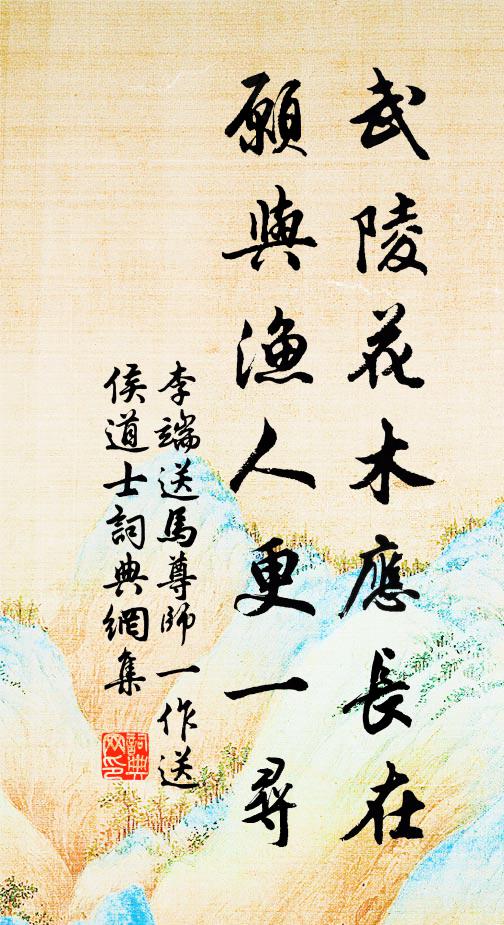 武陵花木應長在
願與漁人更一尋
李端送馬尊師一作送
侯道士詞典網集
詞典
网印